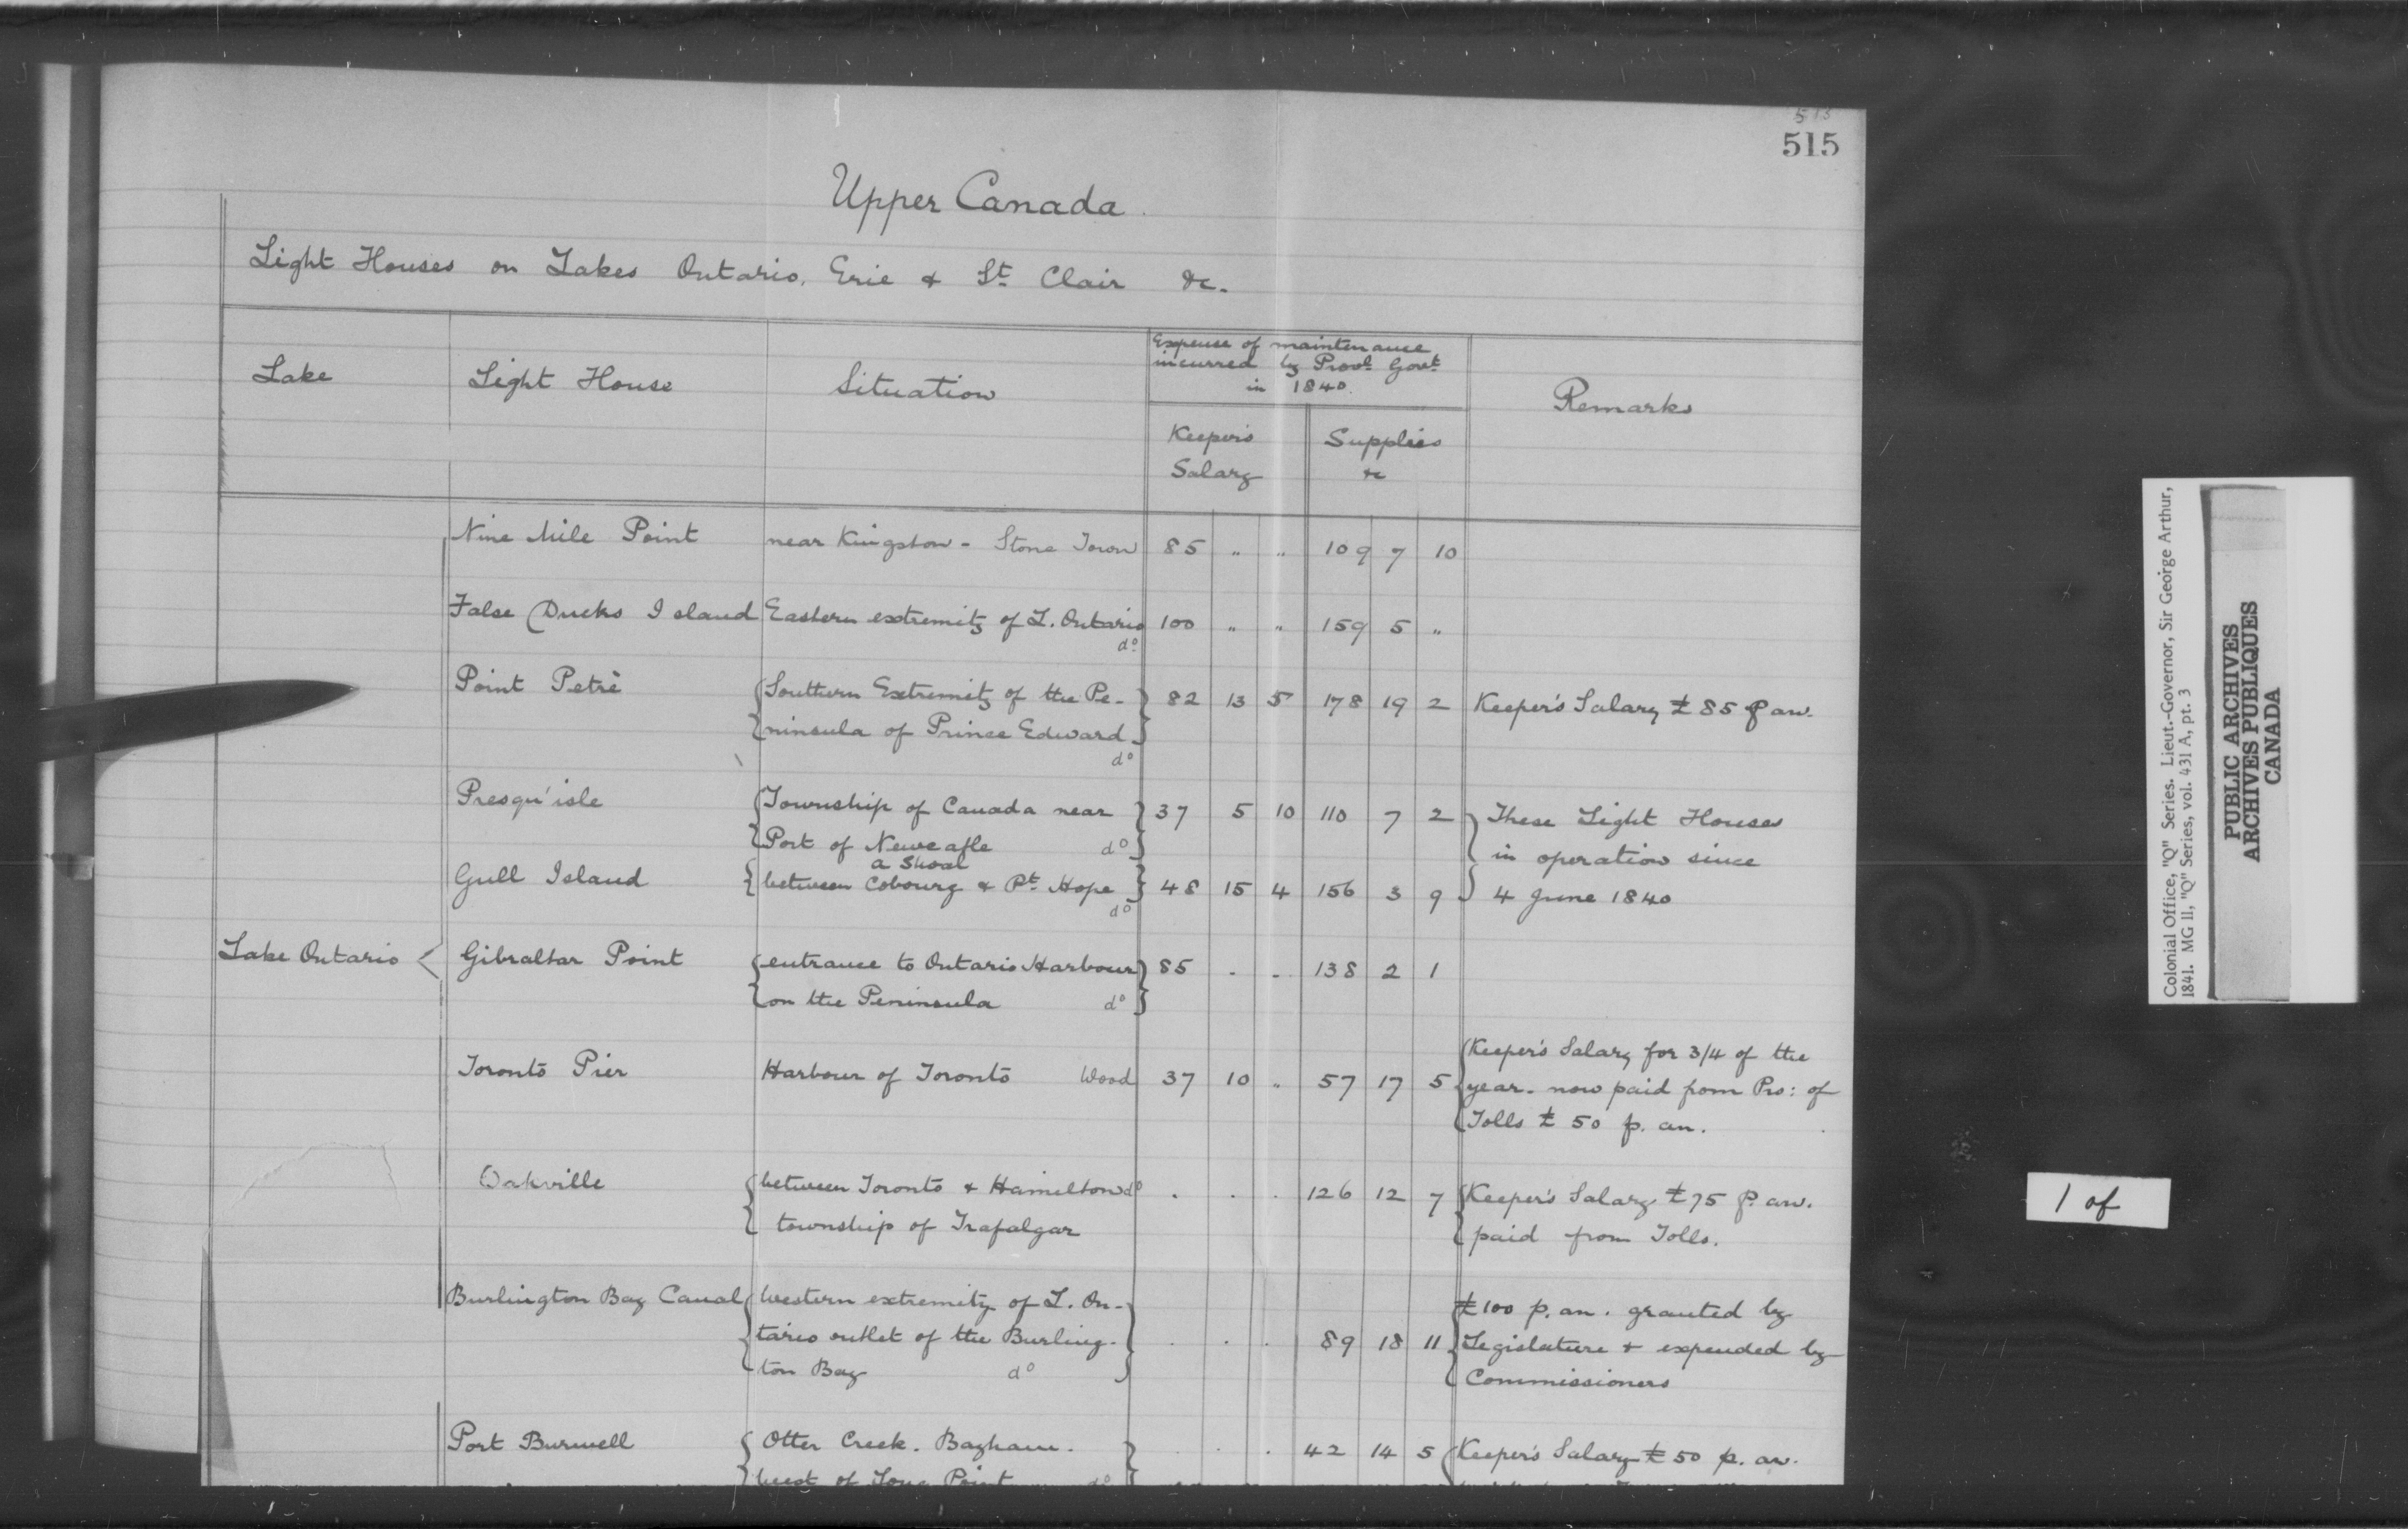 515
515
Upper Canada.
Light Houses on Lakes Ontario, Erie & St Clair &c.
Lake
Light House
Situation
Expense of maintenance
incurred by Provl Govt
in 1840.
Keeper's
Salary
Supplies
&c
Remarks
Nine Mile Point near Kingston - Stone Town 85 " " 109 7 10
False Ducks Island Eastern extremity of L. Ontario 100 " " 159 5 "
do
Point Petrè Southern Extremity of the Pe- 82 13 5 178 19 2 Keeper's Salary £85 p an.
ninsula of Prince Edward
do
Presqu'isle Township of Canada near 37 5 10 110 7 2 These Light Houses
Port of Newcastle do in operation since
a Shoal
Gull Island between Cobourg & Pt Hope 48 15 4 156 3 9 4 June 1840
do
Lake Ontario Gibraltar Point entrance to Ontario Harbour 85 . . 138 2 1
on the Peninsula do
Keeper's Salary for 3/4 of the
Toronto Pier Harbour of Toronto Wood 37 10 " 57 17 5 year. now paid from Pro: of
Tolls £ 50 p. an.
Oakville between Toronto & Hamilton do . . . 126 12 7 Keeper's Salary £75 p. an.
township of Trafalgar paid from Tolls.
Burlington Bay Canal Western extremity of L. On- £100 p. an. granted by
tario outlet of the Burling- . . . 89 18 11 Legislature & expended by
ton Bay do Commissioners
Port Burwell Otter Creek. Bayham. . . . 42 14 5 Keeper's Salary £50 p. an.
West of Long Point do
Colonial Office, "Q" Series. Lieut.-Governor, Sir George Arthur,
1841. MG 11, "Q" Series, vol. 431 A, pt. 3
PUBLIC ARCHIVES
ARCHIVES PUBLIQUES
CANADA
1 of